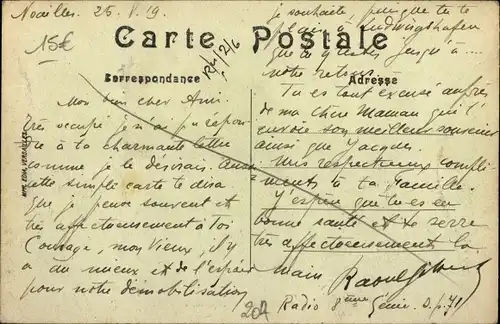 Noailles. 25. V. 19.
15€
Carte Postale
Correspondance
Adresse
Mon bien cher Ami.
Très occupé je n'ai pu répon-
dre à ta charmante lettre
comme je le désirais. Aussi
cette simple carte te dira
que je pense souvent et
très affectueusement à toi
Courage, mon Vieux, il y
a du mieux et de l'espoir
pour notre démobilisation
je souhaite puisque tu te
plais à Ludwigshafen
que tu y restes jusqu'à ....
notre retour.
Tu es tout excusé auprès
de ma chère Maman qui t'
envoie son meilleur souvenir
ainsi que Jacques.
Mes respectueux compli-
ments à ta famille.
J'espère que tu es en
bonne santé et te serre
très affectueusement la
main Raoul
Radio 8ème Génie. D.p. 71
207